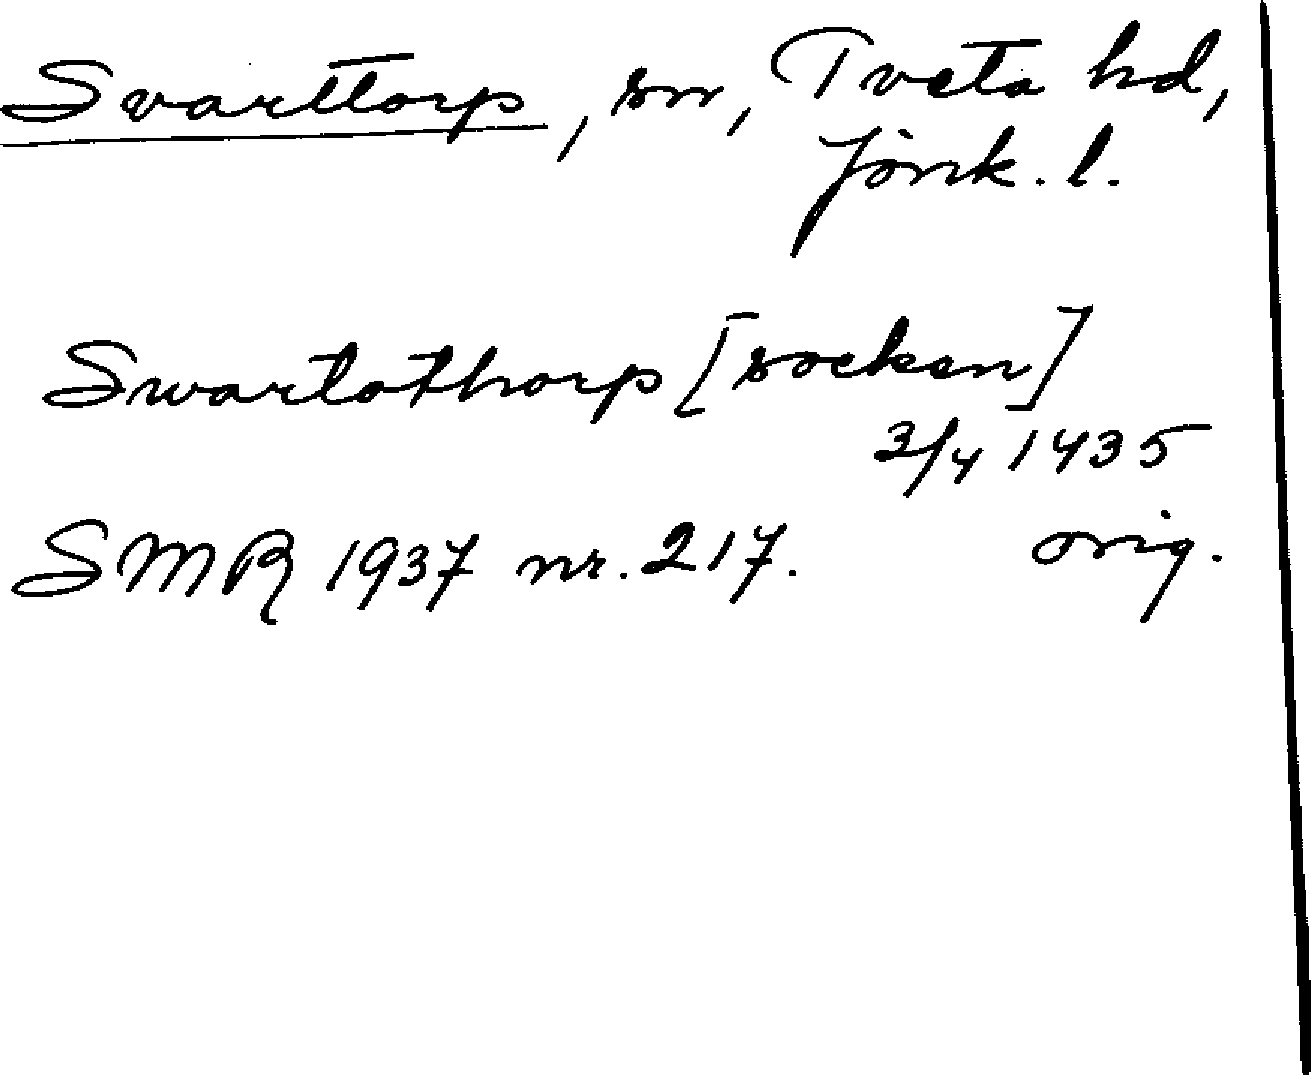 Svarttorp, sn, Tveta hd,
Jönk. l.
Swartathorp [socken]
3/4 1435
SMR 1937 nr. 217. orig.